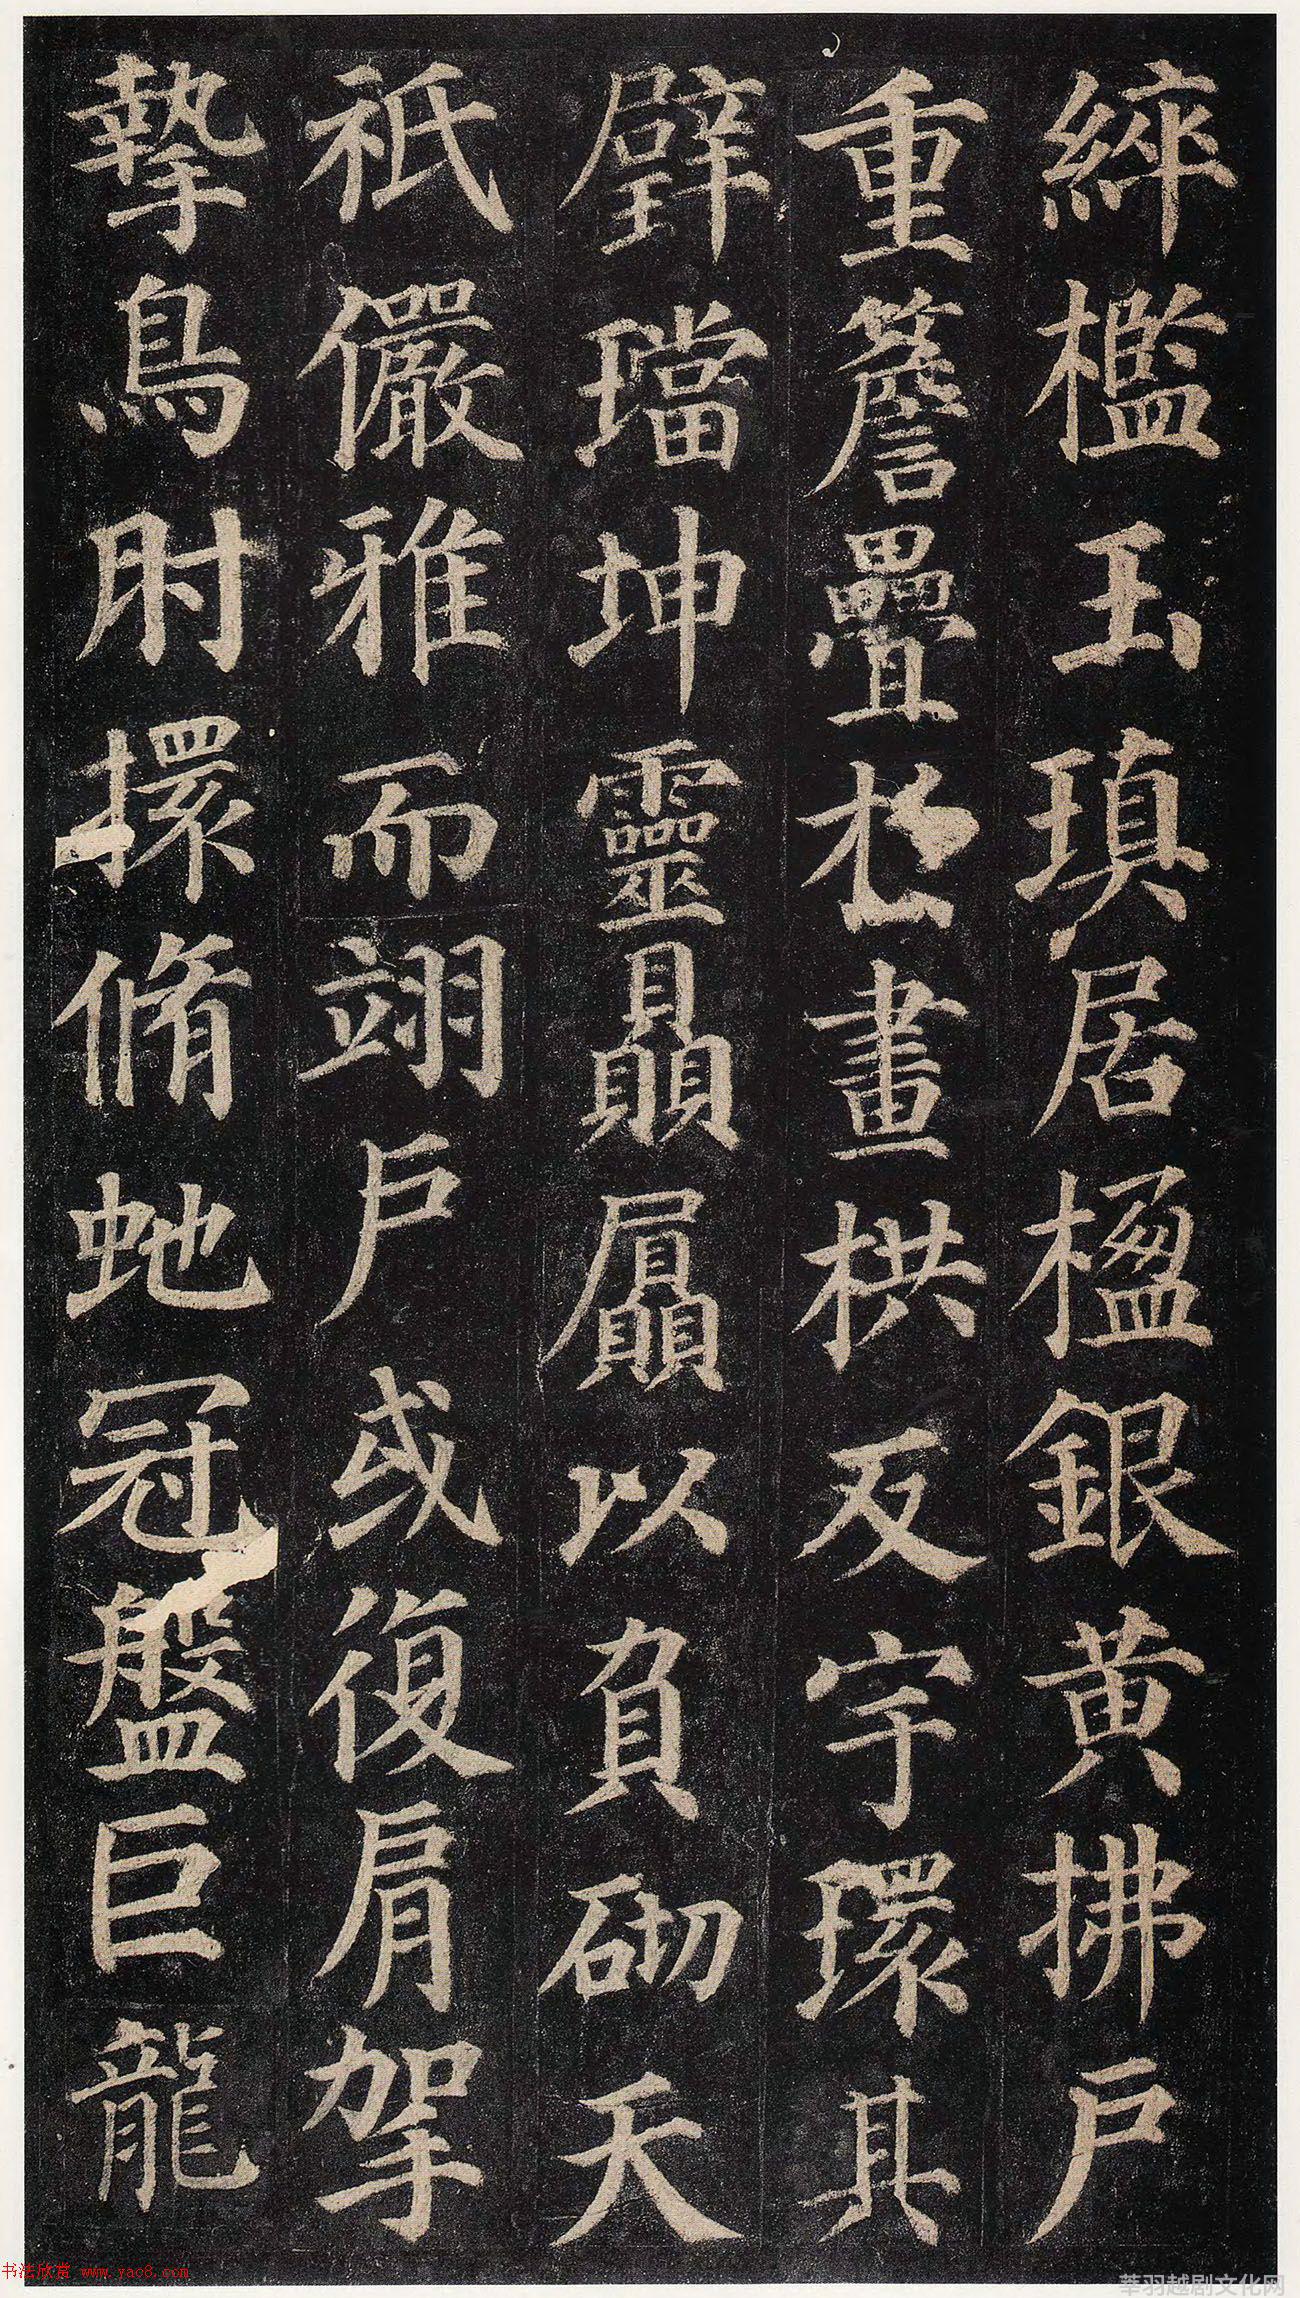 綷檻玉瑱居楹銀黃拂戶
重簷疊於畫栱反宇環其
壁璫坤靈贔屭以負砌天
祇儼雅而翊戶或復肩挐
摯鳥肘擐脩虵冠盤巨龍
书法欣赏 www.yac8.com
莘羽越剧文化网